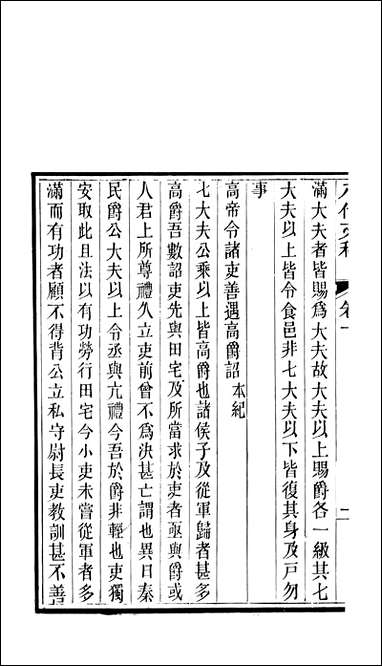 八代文粹 卷一 二
滿大夫者皆賜爲大夫故大夫以上賜爵各一級其七
大夫以上皆令食邑非七大夫以下皆復其身及戸勿
事
高帝令諸吏善遇高爵詔 本紀
七大夫公乘以上皆高爵也諸侯子及從軍歸者甚多
高爵吾數詔吏先與田宅及所當求於吏者亟與爵或
人君上所尊禮久立吏前曾不爲決甚亡謂也異日秦
民爵公大夫以上令丞與亢禮今吾於爵非輕也吏獨
安取此且法以有功勞行田宅今小吏未嘗從軍者多
滿而有功者顧不得背公立私守尉長吏教訓甚不善